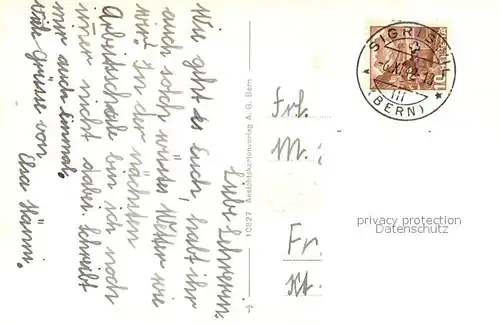 Liebe Lehrerin!
Wie geht es Euch, habt ihr
auch solch wüstes Wetter wie
wir? In der nächsten
Arbeitschool bin ich noch
imer nicht dabei. Schreibt
mir auch einmal.
Viele Grüsse von
Elsa Hänni.
10827 Ansichtskartenverlag A. G. Bern
SIGRISWIL
(BERN)
HELVETIA
10
Frl.
M.
Fr.
Kt.
privacy protection
Datenschutz